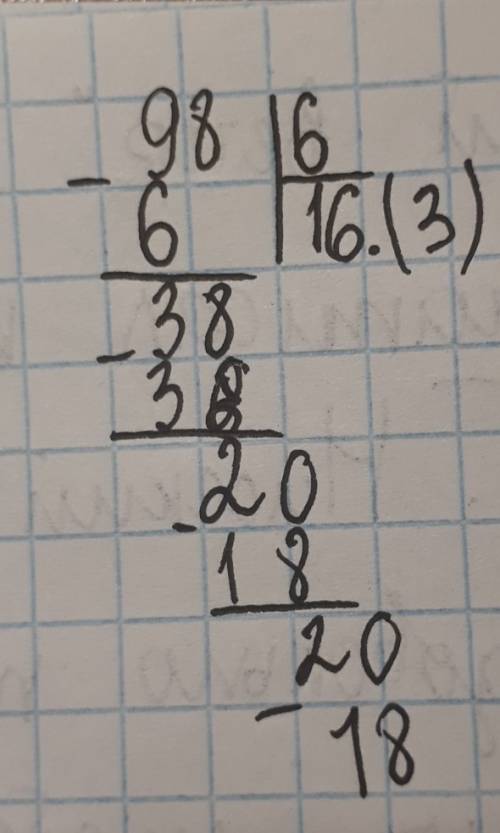 98 | 6
- 6 | 16.(3)
38
- 36
20
- 18
20
- 18